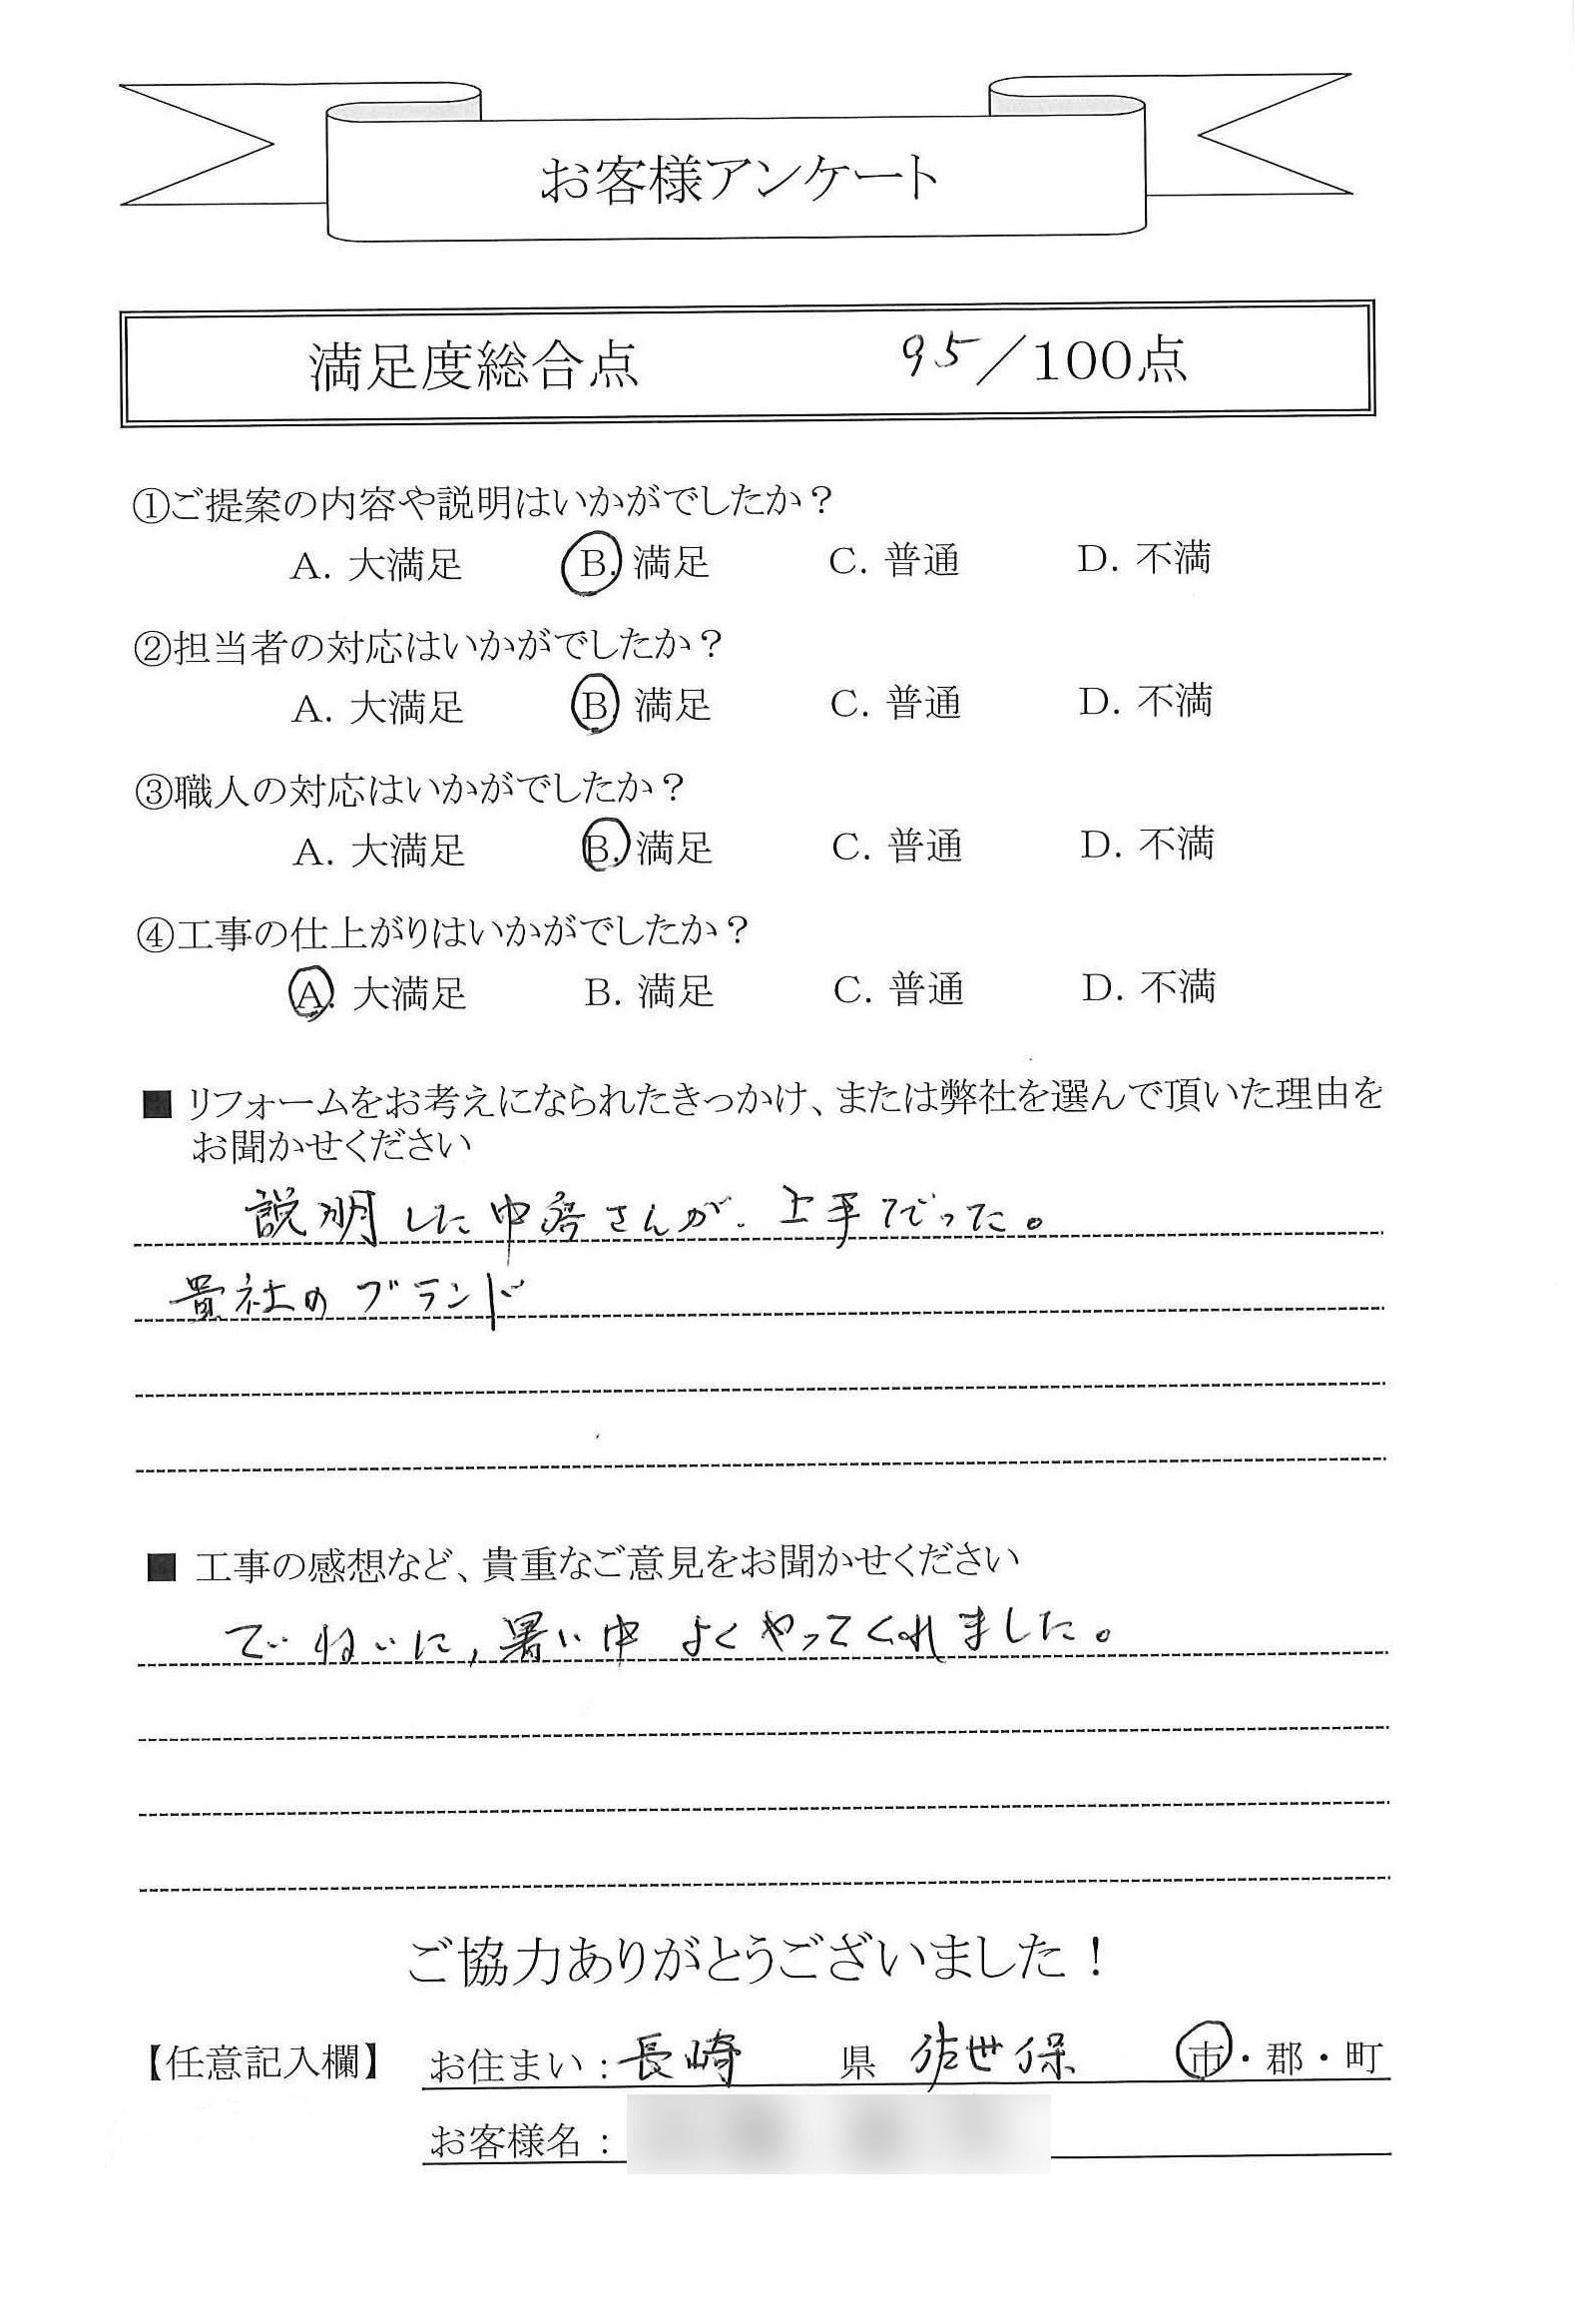 お客様アンケート
満足度総合点 95/100点
①ご提案の内容や説明はいかがでしたか？
A. 大満足 B. 満足 C. 普通 D. 不満
②担当者の対応はいかがでしたか？
A. 大満足 B. 満足 C. 普通 D. 不満
③職人の対応はいかがでしたか？
A. 大満足 B. 満足 C. 普通 D. 不満
④工事の仕上がりはいかがでしたか？
A. 大満足 B. 満足 C. 普通 D. 不満
■ リフォームをお考えになられたきっかけ、または弊社を選んで頂いた理由を
お聞かせください
説明した中さんが、上手でだった。
貴社のブランド
■ 工事の感想など、貴重なご意見をお聞かせください
でいねいに，暑い中 よくやってくれました。
ご協力ありがとうございました！
【任意記入欄】 お住まい：長崎 県 佐世保 市・郡・町
お客様名：